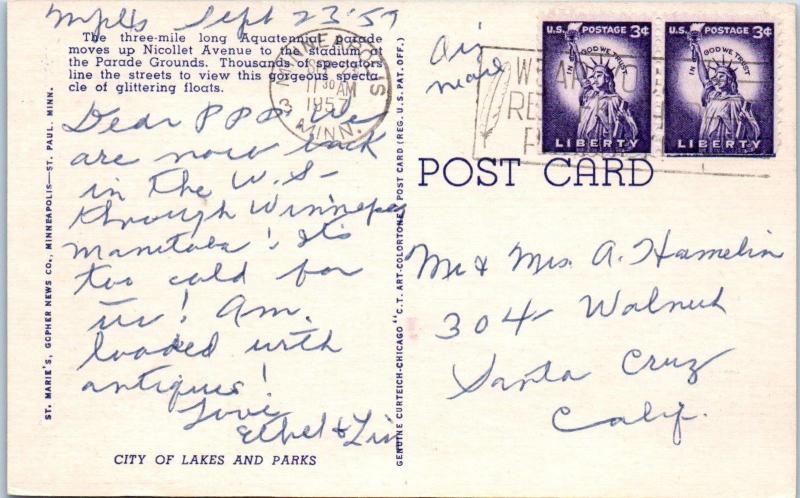 Mpls Sept 23 '57
The three-mile long Aquatennial parade
moves up Nicollet Avenue to the stadium at
the Parade Grounds. Thousands of spectators
line the streets to view this gorgeous specta-
cle of glittering floats.
Dear PPP, We
are now back
in the U.S-
through Winnepeg
Manitoba! It's
too cold for
us! Am.
loaded with
antiques!
Love
Ethel & Lin
CITY OF LAKES AND PARKS
ST. MARIE'S, GOPHER NEWS CO., MINNEAPOLIS—ST. PAUL, MINN.
GENUINE CURTEICH-CHICAGO "C.T. ART-COLORTONE" POST CARD (REG. U.S. PAT. OFF.)
MINNEAPOLIS
11 30 AM
1957
3 MINN.
Air
mail
U.S. POSTAGE 3¢
IN GOD WE TRUST
LIBERTY
U.S. POSTAGE 3¢
IN GOD WE TRUST
LIBERTY
POST CARD
Mr & Mrs. A. Hamelin
304 Walnut
Santa Cruz
Calif.